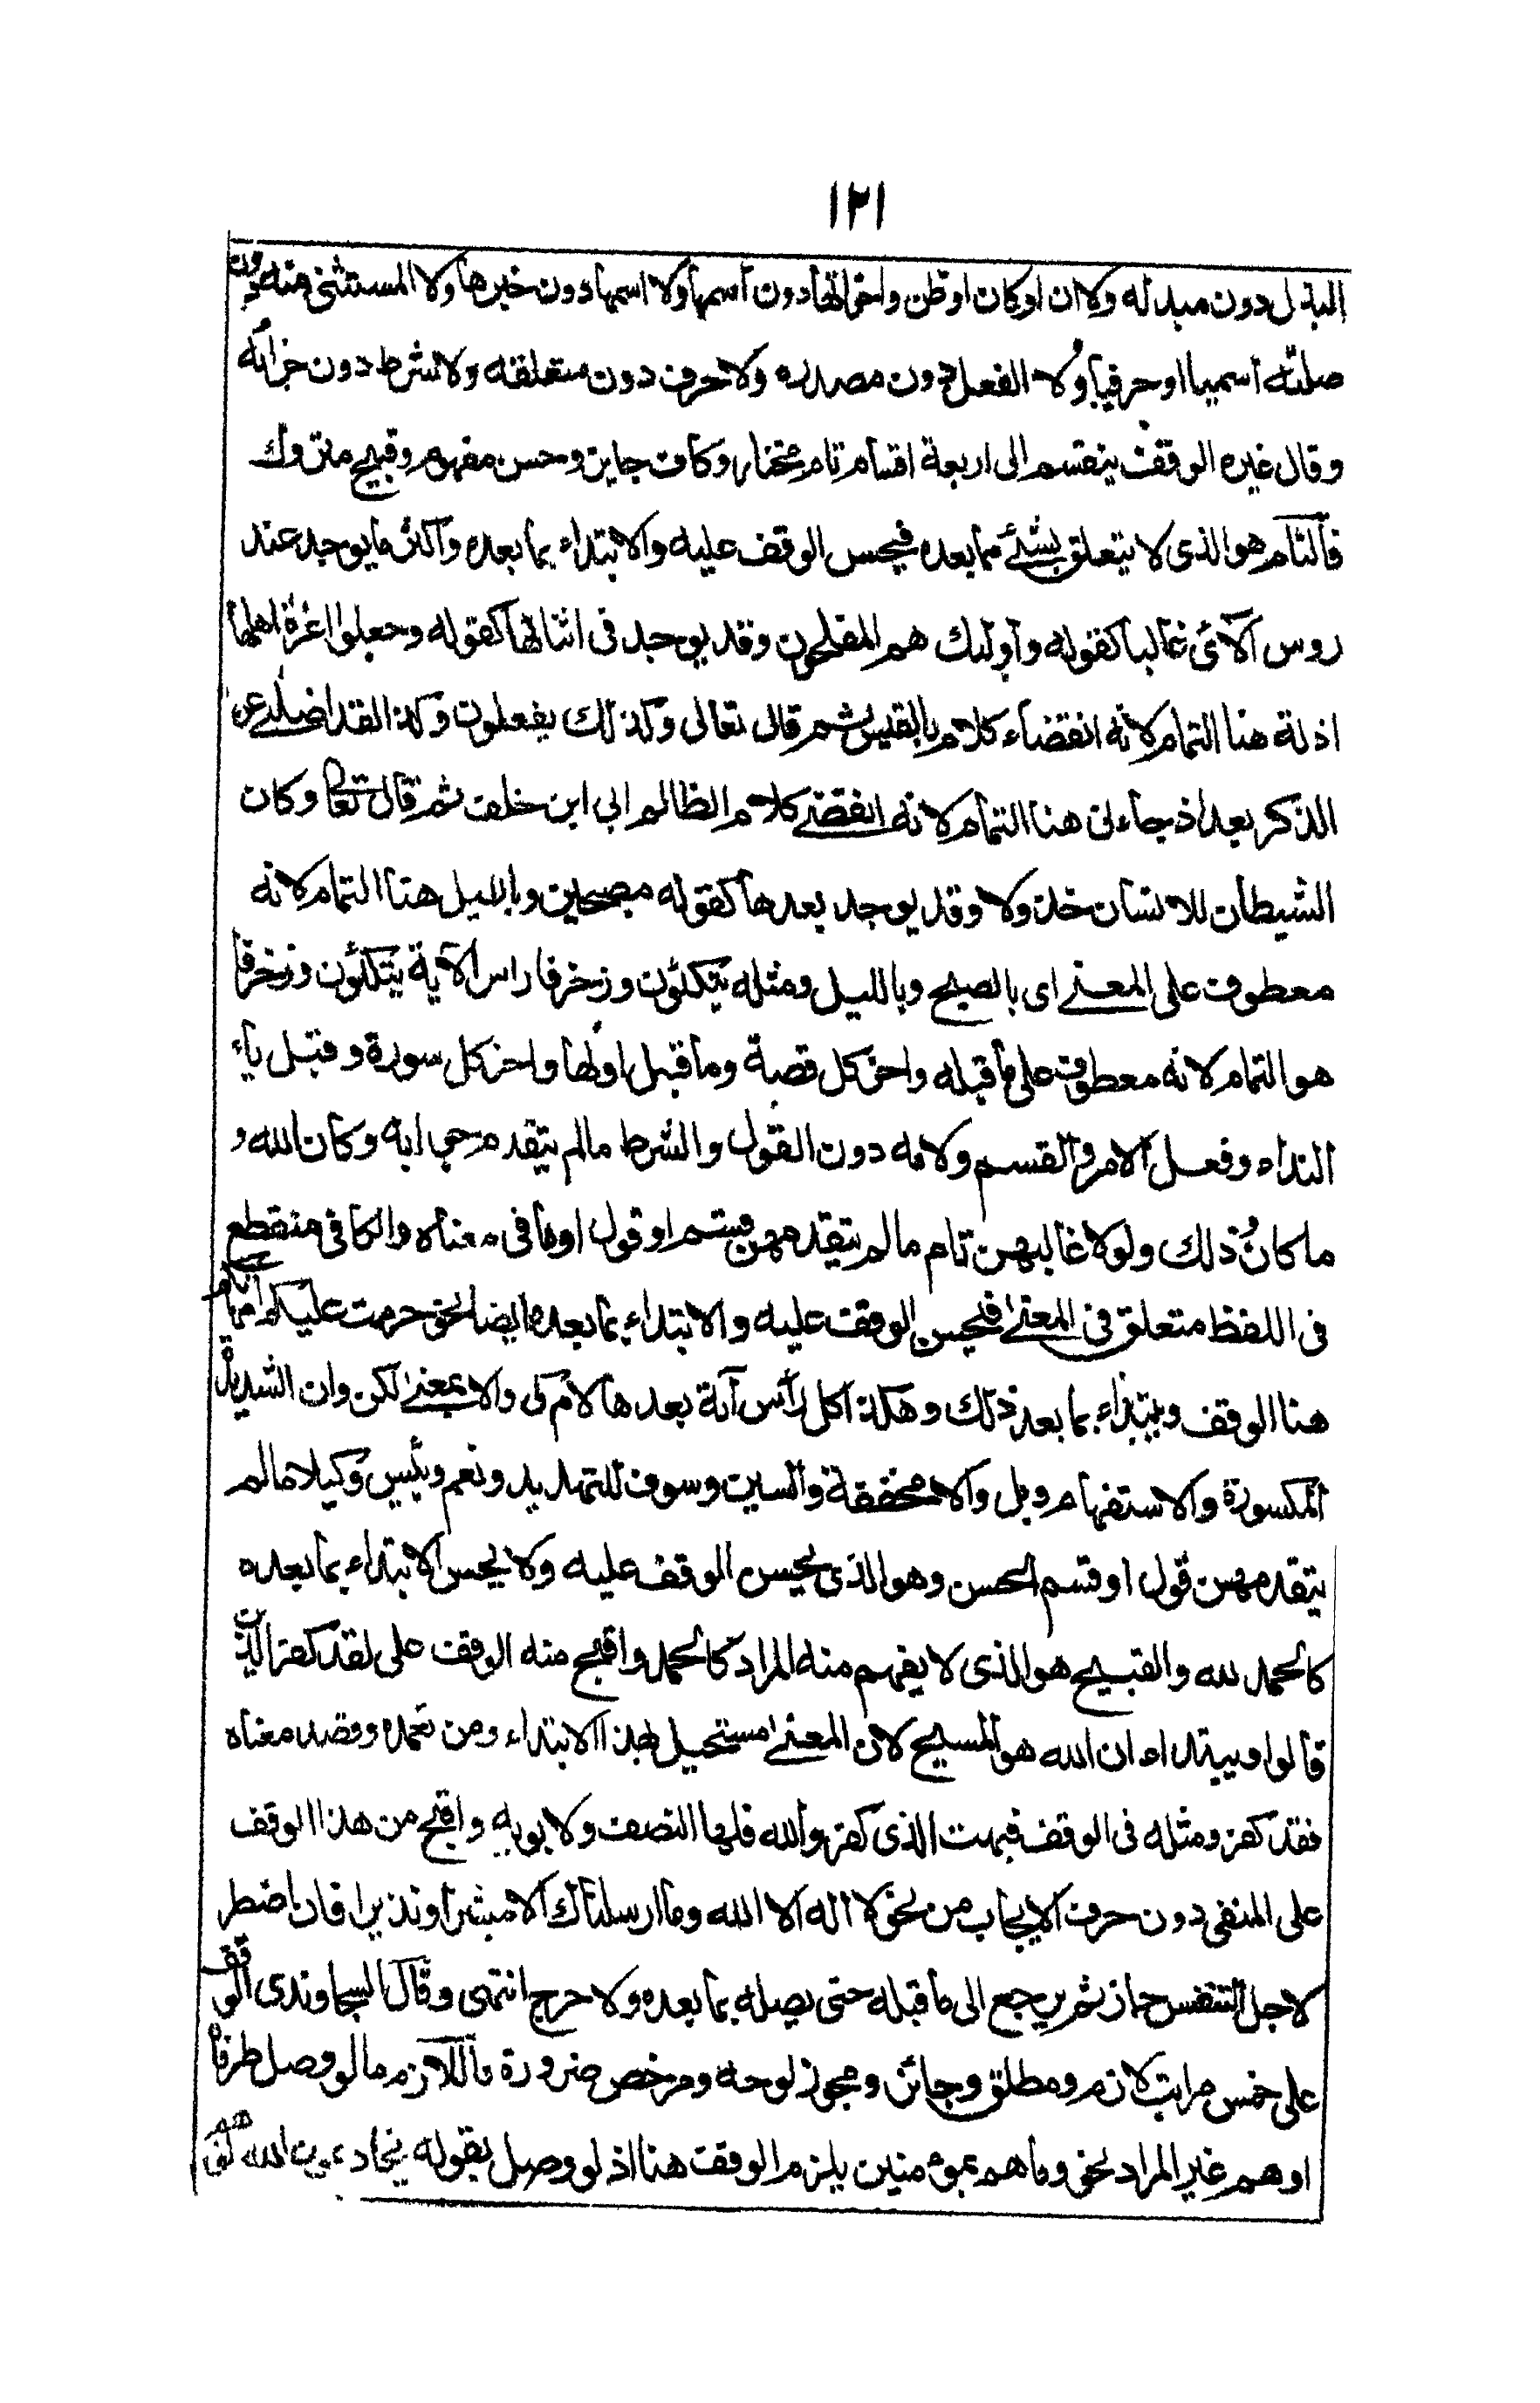 ١٢١
البدل دون مبدله ولا ان او كان او ظن واخواتها دون اسمها ولا اسمها دون خبرها ولا المستثنى منه دون
صلته اسميا او حرفيا ولا الفعل دون مصدره ولا حرف دون متعلقه ولا شرط دون جزائه
وقال غيره الوقف ينقسم الى اربعة اقسام تام مختار وكاف جايز وحسن مفهوم وقبيح متروك
فالتام هو الذى لا يتعلق بشئ مما بعده فيحسن الوقف عليه والابتداء بما بعده واكثر ما يوجد عند
روس الآى غالبا كقوله واولئك هم المفلحون وقد يوجد فى اثنائها كقوله وجعلوا اعزة اهلها
اذلة هنا التمام لانه انقضاء كلام بالقيس ثم قال تعالى وكذلك يفعلون وكذا لقد اضلنى عن
الذكر بعد اذ جاءنى هنا التمام لانه انقضى كلام الظالم ابى ابن خلف ثم قال تعالى وكان
الشيطان للانسان خذولا وقد يوجد بعدها كقوله مصبحين وبالليل هنا التمام لانه
معطوف على المعنى اى بالصبح وبالليل ومثله يتكئون وزخرفا راس الآية يتكئون وزخرفا
هو التمام لانه معطوف على ما قبله واخر كل قصة وما قبل اولها واخر كل سورة وقبل ياء
النداء وفعل الامر والقسم ولامه دون القول والشرط مالم يتقدم جوابه وكان الله و
ما كان ذلك ولولا غالبهن تام ما لم يتقدمهن قسم او قول او ما فى معناه والكافى منقطع
فى اللفظ متعلق فى المعنى فيحسن الوقف عليه والابتداء بما بعده ايضا نحو حرمت عليكم امهاتكم
هنا الوقف ويبتداء بما بعد ذلك وهكذا كل رأس آية بعدها لام كى والا بمعنى لكن وان الشديدة
المكسورة والاستفهام وبل والا مخففة والسين وسوف للتهديد ونعم وبئس وكيلا مالم
يتقدمهن قول او قسم الحسن وهو الذى يحسن الوقف عليه ولا يحسن الابتداء بما بعده
كالحمد لله والقبيح هو الذى لا يفهم منه المراد كالحمد واقبح منه الوقف على لقد كفر الذين
قالوا ويبتداء ان الله هو المسيح لان المعنى مستحيل بهذا الابتداء ومن تعمده وقصد معناه
فقد كفر ومثله فى الوقف فبهت الذى كفر والله فلها النصف ولابويه واقبح من هذا الوقف
على المنفى دون حرف الايجاب من نحو لا اله الا الله وما ارسلناك الا مبشرا ونذيرا فان اضطر
لاجل التنفس جاز ثم يرجع الى ما قبله حتى يصله بما بعده ولا حرج انتهى وقال السجاوندى الوقف
على خمس مراتب لازم ومطلق وجائز ومجوز لوجه ومرخص ضرورة فاللازم ما لو وصل طرفاه
اوهم غير المراد نحو وما هم بمؤمنين يلزم الوقف هنا اذ لو وصل بقوله يخادعون الله